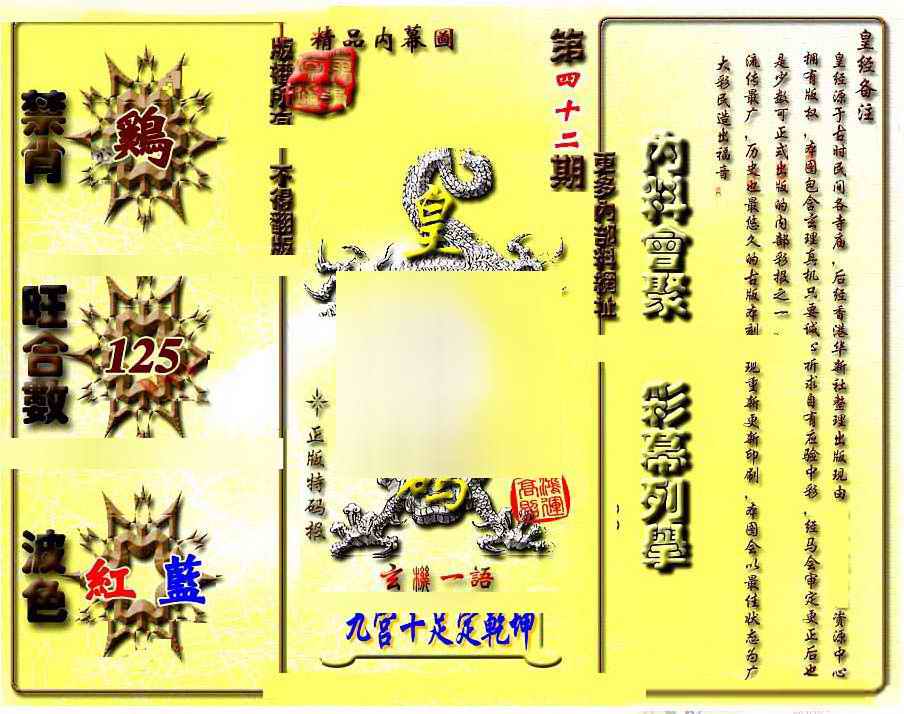 精品内幕圖
第四十二期
版權所有
不得翻版
禁肖
鷄
旺合數
125
波色
紅 藍
皇
码
正版特码报
鴻運高照
玄機一語
九宫十足定乾坤
更多内部料網址
内料會聚
彩幕列舉
皇经备注
皇经源于古时民间各寺庙，后经香港华新社整理出版现由
资源中心
拥有版权，本图包含玄理真机只要诚心祈求自有应验中彩，经马会审定更正后也
是少数可正式出版的内部彩报之一、
流传最广，历史也最悠久的古版本刊
现重新更新印刷，本图会以最佳状态为广
大彩民造出福音